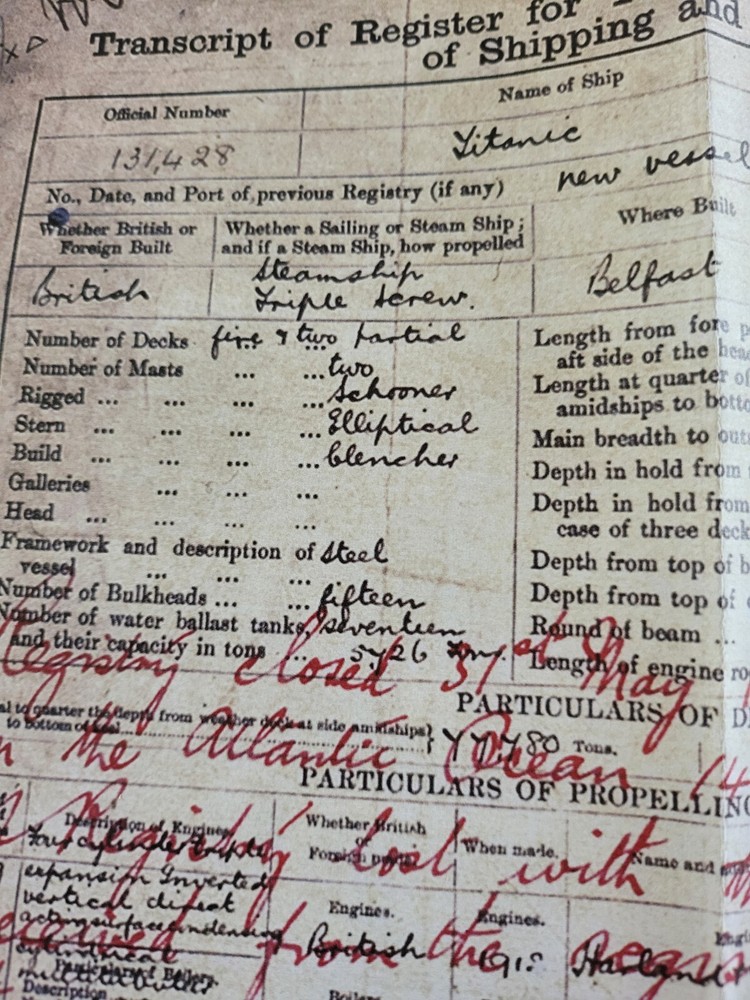 Transcript of Register for
of Shipping and
Official Number
Name of Ship
131,428
Titanic
No., Date, and Port of previous Registry (if any)
new vessel
Whether British or
Foreign Built
Whether a Sailing or Steam Ship;
and if a Steam Ship, how propelled
Where Built
British
Steamship
Triple Screw.
Belfast
Number of Decks five & two partial
Number of Masts ... ... two
Rigged ... ... ... ... Schooner
Stern ... ... ... Elliptical
Build ... ... ... ... clencher
Galleries ... ... ...
Head ... ... ... ...
Framework and description of Steel
vessel ... ... ...
Number of Bulkheads ... ... fifteen
Number of water ballast tanks, seventeen
and their capacity in tons ... 5726 Tons.
Length from fore p
aft side of the hea
Length at quarter of
amidships to botto
Main breadth to outs
Depth in hold from
Depth in hold from
case of three deck
Depth from top of b
Depth from top of
Round of beam ...
Length of engine ro
Registry closed 31st May
PARTICULARS OF D
al to quarter the depth from weather deck at side amidships
to bottom of keel
77,780 Tons.
the Atlantic Ocean 14
PARTICULARS OF PROPELLING
Registry lost with
Description of Engines.
Whether British
or
Foreign made.
When made.
Name and
Four cylinder triple
expansion Inverted
vertical direct
acting surface condensing
Engines.
Engines.
Engi
from the Regis
British
191
Harland
cylindrical
Particulars of Boilers.
multitubular
Description
Boilers